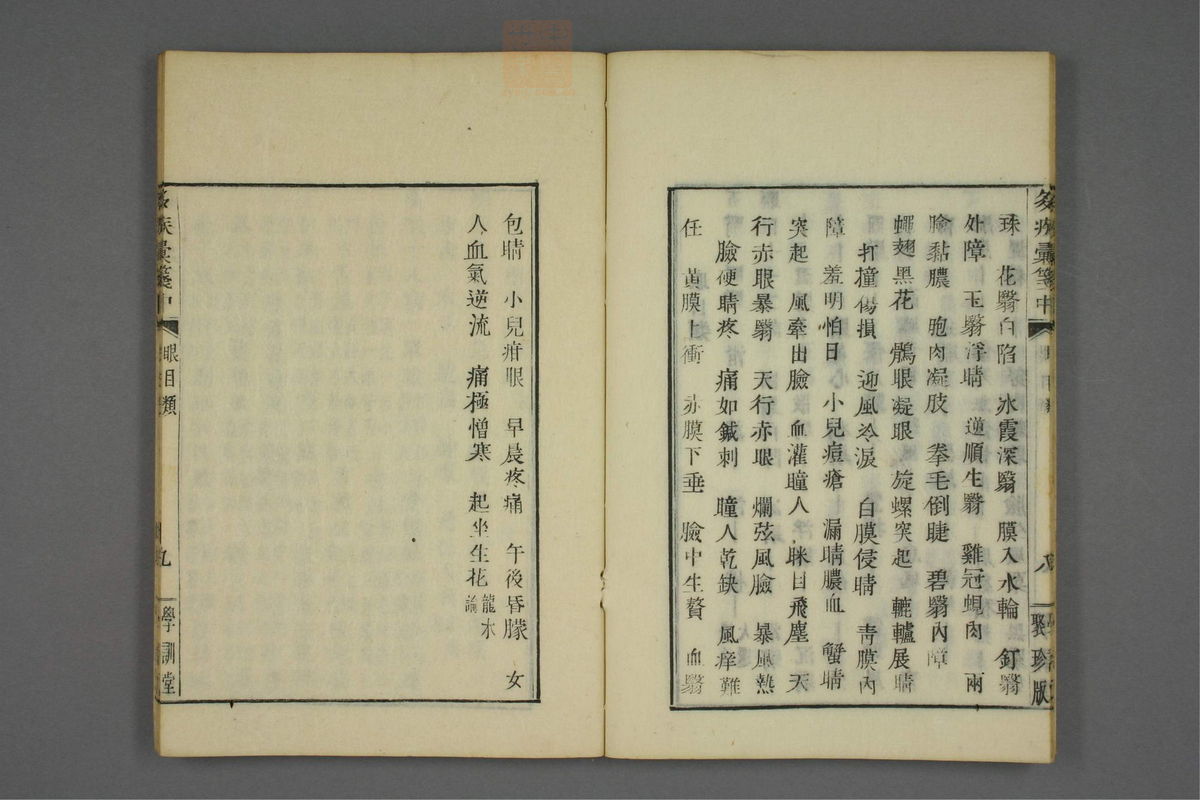 珠　花翳白陷　冰霞深翳　膜入水輪　釘翳
外障　玉翳浮睛　逆順生翳　雞冠蜆肉　兩
瞼黏膿　胞肉凝肢　拳毛倒睫　碧翳內障
蠅翅黑花　鶻眼凝眼　旋螺突起　轆轤展睛
打撞傷損　迎風冷淚　白膜侵睛　青膜內
障　羞明怕日　小兒痘瘡　漏睛膿血　蟹睛
突起　風牽出瞼　血灌瞳人　眯目飛塵　天
行赤眼暴翳　天行赤眼　爛弦風瞼　暴風熱
瞼硬睛疼　痛如鍼刺　瞳人乾缺　風痒難
任　黃膜上衝　赤膜下垂　瞼中生贅　血翳
聚珍版
包睛　小兒疳眼　早晨疼痛　午後昏朦　女
人血氣逆流　痛極憎寒　起坐生花　龍木論
彙箋中　眼目類　九　學訓堂